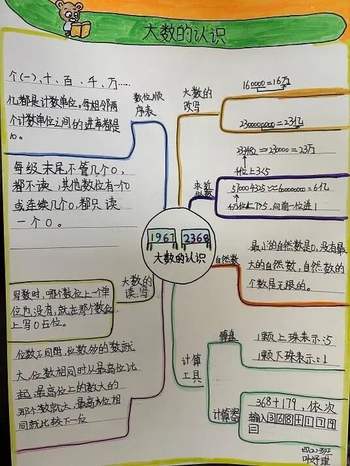 大数的认识
个(一)、十、百、千、万……
亿都是计数单位,每相邻两
个计数单位之间的进率都是
10。
数位顺
序表
每级末尾不管几个0,
都不读,其他数位有一个0
或连续几个0,都只读
一个0。
大数的
改写
160000=16万
2300000000=23亿
230000=23万
1967
2368
大数的认识
自然数
最小的自然数是0,没有最
大的自然数,自然数的
个数是无限的。
大数的
读、写
写数时,哪个数位上一个单
位也没有,就在那个数位
上写0占位。
位数不同时,位数多的数就
大,位数相同时从最高位比
起,最高位上的数大的
那个数就大,最高位相
同就比较下一位
计算
工具
算盘
1颗上珠表示:5
1颗下珠表示:1
计算器
368+179,依次
输入368+179
=